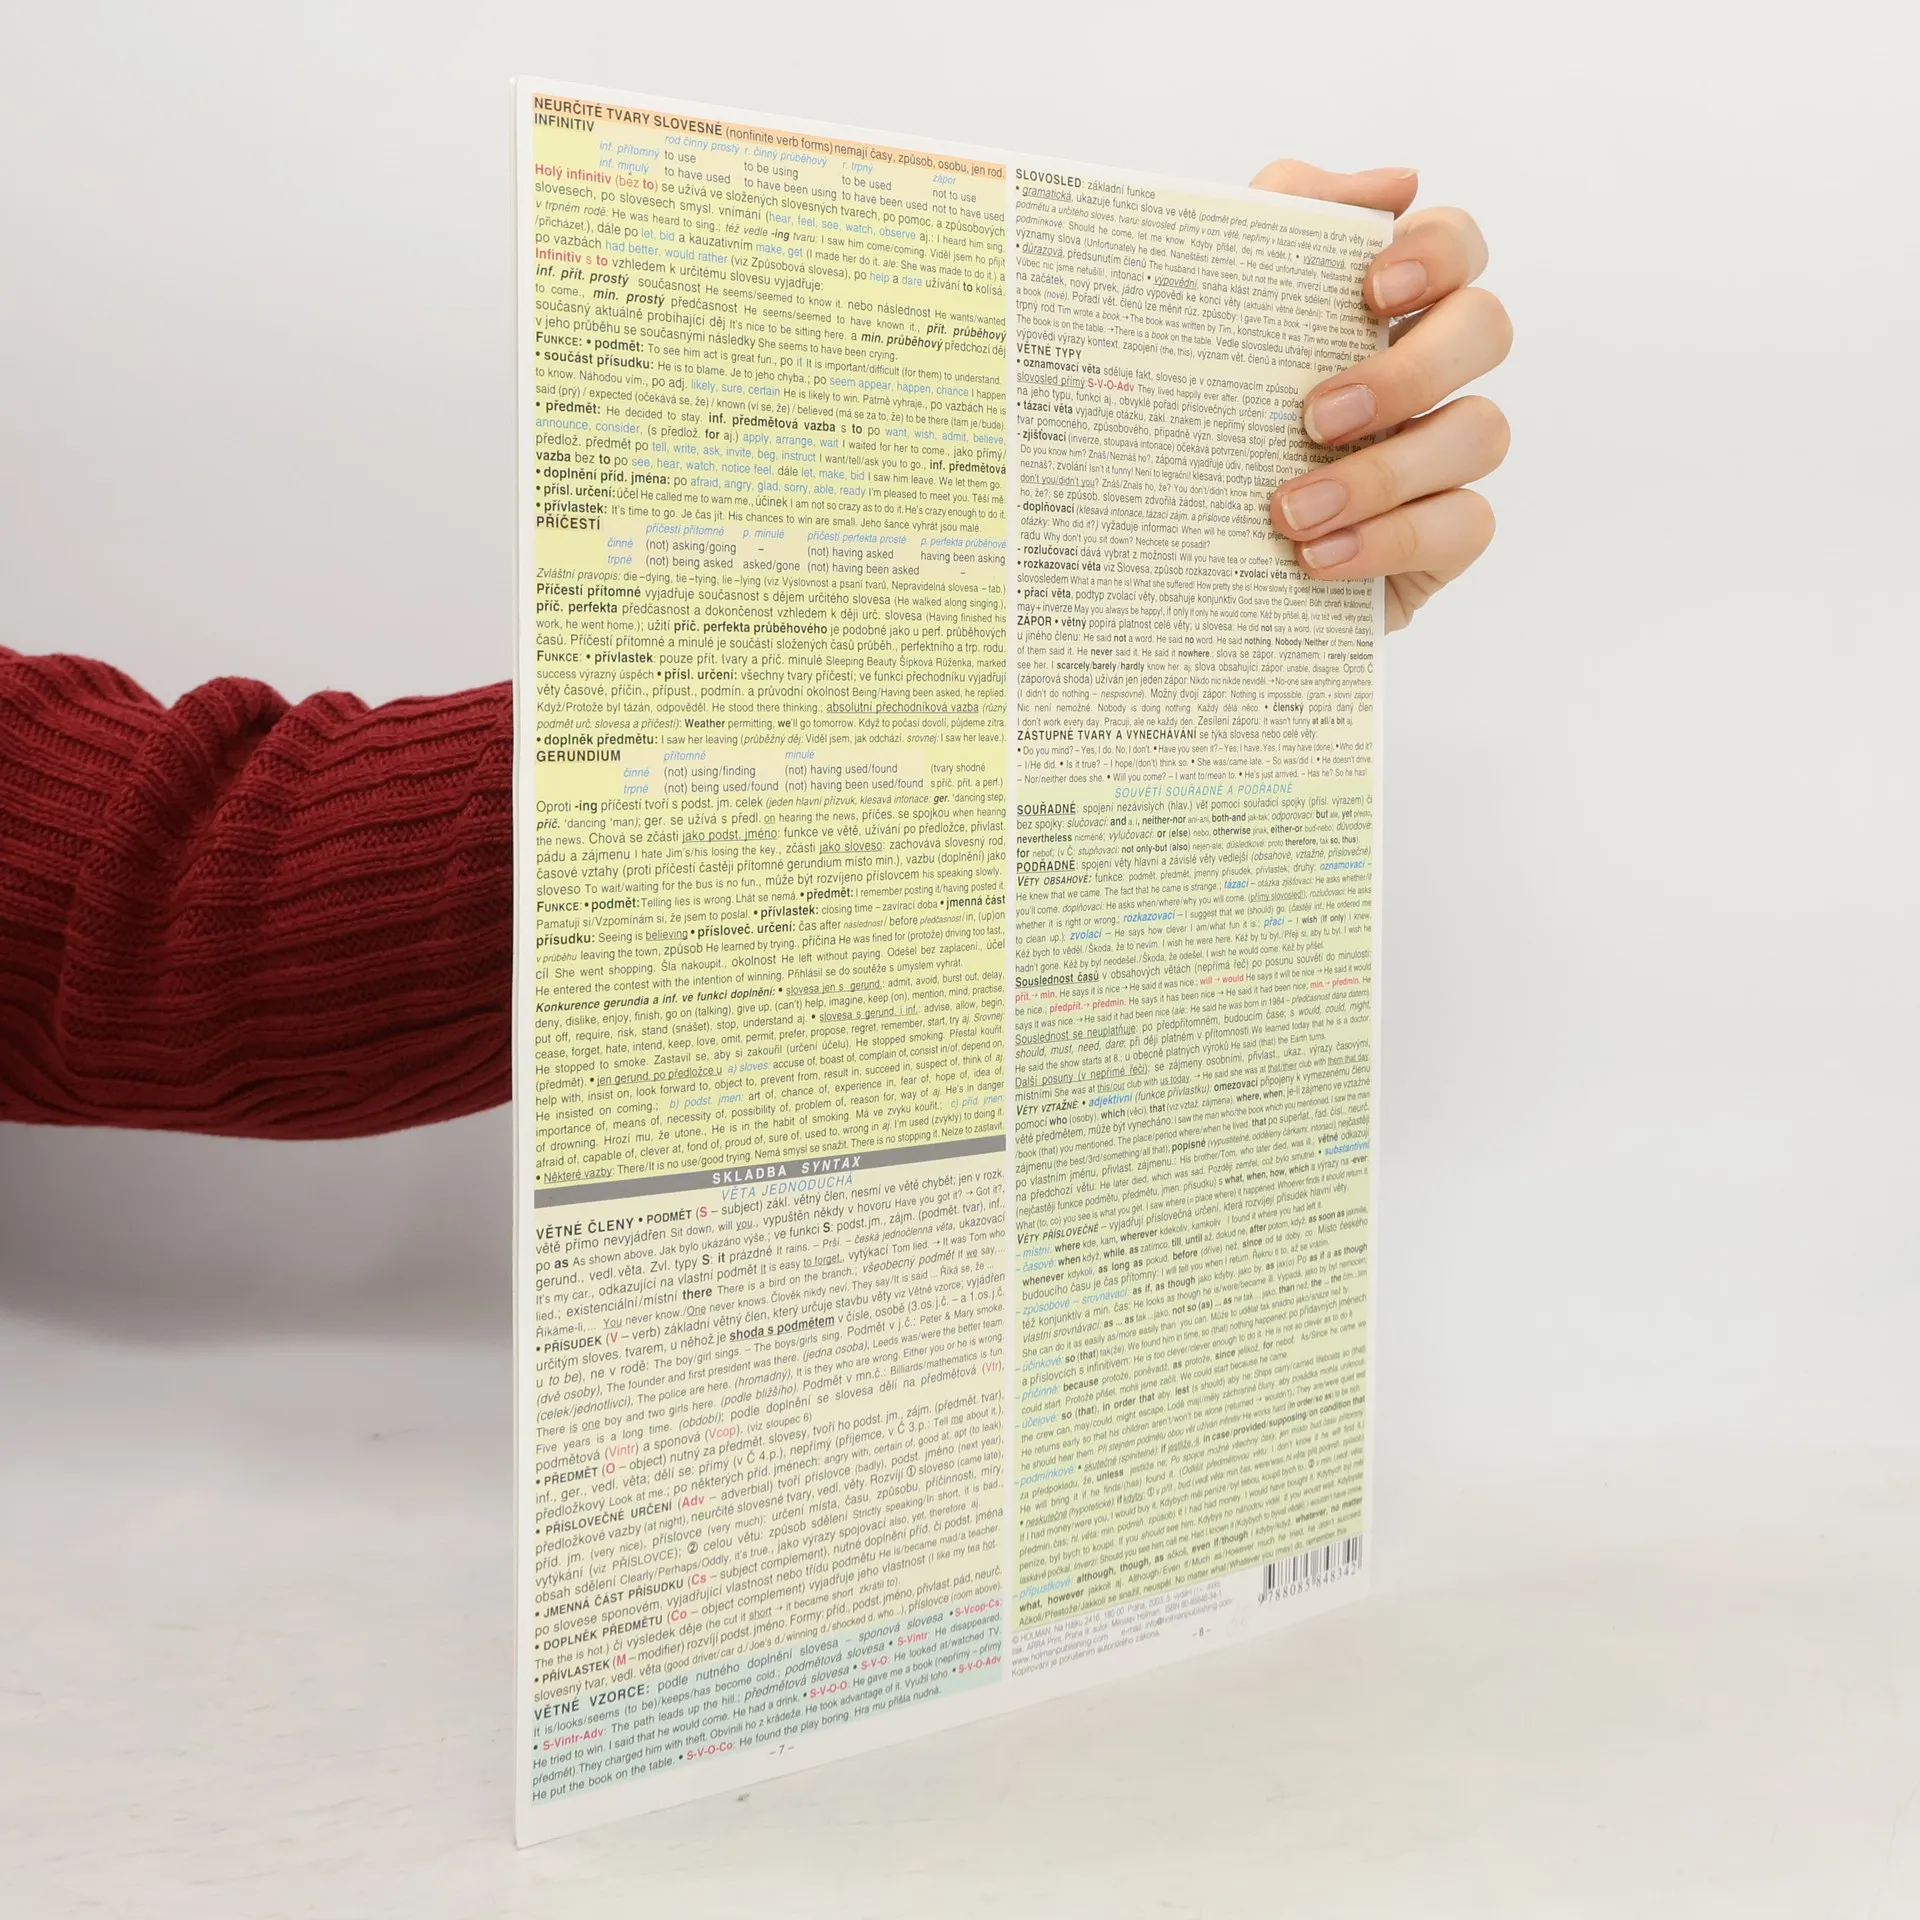 NEURČITÉ TVARY SLOVESNÉ (nonfinite verb forms) nemají časy, způsob, osobu, jen rod.
INFINITIV
rod činný prostý r. činný průběhový r. trpný zápor
inf. přítomný to use to be using to be used not to use
inf. minulý to have used to have been using to have been used not to have used
Holý infinitiv (bez to) se užívá ve složených slovesných tvarech, po pomoc. a způsobových
slovesech, po slovesech smysl. vnímání (hear, feel, see, watch, observe aj.: I heard him sing.
v trpném rodě: He was heard to sing.; též vedle -ing tvaru: I saw him come/coming. Viděl jsem ho přijít
/přicházet.), dále po let, bid a kauzativním make, get (I made her do it. ale: She was made to do it.) a
po vazbách had better, would rather (viz Způsobová slovesa), po help a dare užívání to kolísá.
Infinitiv s to vzhledem k určitému slovesu vyjadřuje:
inf. přít. prostý současnost He seems/seemed to know it. nebo následnost He wants/wanted
to come., min. prostý předčasnost He seems/seemed to have known it., přít. průběhový
současný aktuálně probíhající děj It's nice to be sitting here. a min. průběhový předchozí děj
v jeho průběhu se současnými následky She seems to have been crying.
FUNKCE: • podmět: To see him act is great fun., po it It is important/difficult (for them) to understand.
• součást přísudku: He is to blame. Je to jeho chyba.; po seem appear, happen, chance I happen
to know. Náhodou vím., po adj. likely, sure, certain He is likely to win. Patrně vyhraje., po vazbách He is
said (prý) / expected (očekává se, že) / known (ví se, že) / believed (má se za to, že) to be there (tam je/bude).
• předmět: He decided to stay. inf. předmětová vazba s to po want, wish, admit, believe,
announce, consider, (s předlož. for aj.) apply, arrange, wait I waited for her to come., jako přímý/
předlož. předmět po tell, write, ask, invite, beg, instruct I want/tell/ask you to go., inf. předmětová
vazba bez to po see, hear, watch, notice feel, dále let, make, bid I saw him leave. We let them go.
• doplnění příd. jména: po afraid, angry, glad, sorry, able, ready I'm pleased to meet you. Těší mě.
• přísl. určení: účel He called me to warn me., účinek I am not so crazy as to do it. He's crazy enough to do it.
• přívlastek: It's time to go. Je čas jít. His chances to win are small. Jeho šance vyhrát jsou malé.
PŘÍČESTÍ
příčestí přítomné p. minulé příčestí perfekta prosté p. perfekta průběhové
činné (not) asking/going – (not) having asked having been asking
trpné (not) being asked asked/gone (not) having been asked –
Zvláštní pravopis: die – dying, tie – tying, lie – lying (viz Výslovnost a psaní tvarů, Nepravidelná slovesa – tab.)
Příčestí přítomné vyjadřuje současnost s dějem určitého slovesa (He walked along singing.),
příč. perfekta předčasnost a dokončenost vzhledem k ději urč. slovesa (Having finished his
work, he went home.); užití příč. perfekta průběhového je podobné jako u perf. průběhových
časů. Příčestí přítomné a minulé je součástí složených časů průběh., perfektního a trp. rodu.
FUNKCE: • přívlastek: pouze přít. tvary a příč. minulé Sleeping Beauty Šípková Růženka, marked
success výrazný úspěch • přísl. určení: všechny tvary příčestí; ve funkci přechodníku vyjadřují
věty časové, příčin., přípust., podmín. a průvodní okolnost Being/Having been asked, he replied.
Když/Protože byl tázán, odpověděl. He stood there thinking.; absolutní přechodníková vazba (různý
podmět urč. slovesa a příčestí): Weather permitting, we'll go tomorrow. Když to počasí dovolí, půjdeme zítra.
• doplněk předmětu: I saw her leaving (průběžný děj: Viděl jsem, jak odchází. srovnej: I saw her leave.).
GERUNDIUM
přítomné minulé
činné (not) using/finding (not) having used/found (tvary shodné
trpné (not) being used/found (not) having been used/found s příč. přít. a perf.)
Oproti -ing příčestí tvoří s podst. jm. celek (jeden hlavní přízvuk, klesavá intonace: ger. 'dancing step,
příč. 'dancing 'man); ger. se užívá s předl. on hearing the news, příčes. se spojkou when hearing
the news. Chová se zčásti jako podst. jméno: funkce ve větě, užívání po předložce, přivlast.
pádu a zájmenu I hate Jim's/his losing the key., zčásti jako sloveso: zachovává slovesný rod,
časové vztahy (proti příčestí častěji přítomné gerundium místo min.), vazbu (doplnění) jako
sloveso To wait/waiting for the bus is no fun., může být rozvíjeno příslovcem his speaking slowly.
FUNKCE: • podmět: Telling lies is wrong. Lhát se nemá. • předmět: I remember posting it/having posted it.
Pamatuji si/Vzpomínám si, že jsem to poslal. • přívlastek: closing time – zavírací doba • jmenná část
přísudku: Seeing is believing • přísloveč. určení: čas after následnost/ before předčasnost/ in, (up)on
v průběhu leaving the town, způsob He learned by trying., příčina He was fined for (protože) driving too fast.,
cíl She went shopping. Šla nakoupit., okolnost He left without paying. Odešel bez zaplacení., účel
He entered the contest with the intention of winning. Přihlásil se do soutěže s úmyslem vyhrát.
Konkurence gerundia a inf. ve funkci doplnění: • slovesa jen s gerund.: admit, avoid, burst out, delay,
deny, dislike, enjoy, finish, go on (talking), give up, (can't) help, imagine, keep (on), mention, mind, practise,
put off, require, risk, stand (snášet), stop, understand aj. • slovesa s gerund. i inf.: advise, allow, begin,
cease, forget, hate, intend, keep, love, omit, permit, prefer, propose, regret, remember, start, try aj. Srovnej:
He stopped to smoke. Zastavil se, aby si zakouřil (určení účelu). He stopped smoking. Přestal kouřit.
(předmět). • jen gerund. po předložce u a) sloves: accuse of, boast of, complain of, consist in/of, depend on,
help with, insist on, look forward to, object to, prevent from, result in, succeed in, suspect of, think of aj.
He insisted on coming.; b) podst. jmen: art of, chance of, experience in, fear of, hope of, idea of,
importance of, means of, necessity of, possibility of, problem of, reason for, way of aj. He's in danger
of drowning. Hrozí mu, že utone., He is in the habit of smoking. Má ve zvyku kouřit.; c) příd. jmen:
afraid of, capable of, clever at, fond of, proud of, sure of, used to, wrong in aj. I'm used (zvyklý) to doing it.
• Některé vazby: There/It is no use/good trying. Nemá smysl se snažit. There is no stopping it. Nelze to zastavit.
SKLADBA SYNTAX
VĚTA JEDNODUCHÁ
VĚTNÉ ČLENY • PODMĚT (S – subject) zákl. větný člen, nesmí ve větě chybět; jen v rozk.
větě přímo nevyjádřen Sit down, will you., vypuštěn někdy v hovoru Have you got it? → Got it?,
po as As shown above. Jak bylo ukázáno výše.; ve funkci S: podst. jm., zájm. (podmět. tvar), inf.,
gerund., vedl. věta. Zvl. typy S: it prázdné It rains. – Prší. – česká jednočlenná věta, ukazovací
It's my car., odkazující na vlastní podmět It is easy to forget., vytýkací Tom lied. → It was Tom who
lied.; existenciální/místní there There is a bird on the branch.; všeobecný podmět If we say,...
Říkáme-li,... You never know./One never knows. Člověk nikdy neví. They say/It is said ... Říká se, že ...
• PŘÍSUDEK (V – verb) základní větný člen, který určuje stavbu věty viz Větné vzorce; vyjádřen
určitým sloves. tvarem, u něhož je shoda s podmětem v čísle, osobě (3.os.j.č. – a 1.os.j.č.
u to be), ne v rodě: The boy/girl sings. – The boys/girls sing. Podmět v j.č.: Peter & Mary smoke.
(dvě osoby), The founder and first president was there. (jedna osoba), Leeds was/were the better team.
(celek/jednotlivci), The police are here. (hromadný), It is they who are wrong. Either you or he is wrong.
There is one boy and two girls here. (podle bližšího). Podmět v mn.č.: Billiards/mathematics is fun.
Five years is a long time. (období); podle doplnění se slovesa dělí na předmětová (Vtr),
podmětová (Vintr) a sponová (Vcop). (viz sloupec 6)
• PŘEDMĚT (O – object) nutný za předmět. slovesy, tvoří ho podst. jm., zájm. (předmět. tvar),
inf., ger., vedl. věta; dělí se: přímý (v Č 4.p.), nepřímý (příjemce, v Č 3.p.: Tell me about it.),
předložkový Look at me.; po některých příd. jménech: angry with, certain of, good at, apt (to leak).
• PŘÍSLOVEČNÉ URČENÍ (Adv – adverbial) tvoří příslovce (badly), podst. jméno (next year),
předložkové vazby (at night), neurčité slovesné tvary, vedl. věty. Rozvíjí ① sloveso (came late),
příd. jm. (very nice), příslovce (very much): určení místa, času, způsobu, příčinnosti, míry,
vytýkání (viz PŘÍSLOVCE); ② celou větu: způsob sdělení Strictly speaking/In short, it is bad.,
obsah sdělení Clearly/Perhaps/Oddly, it's true., jako výrazy spojovací also, yet, therefore aj.
• JMENNÁ ČÁST PŘÍSUDKU (Cs – subject complement), nutné doplnění příd. či podst. jména
po slovese sponovém, vyjadřující vlastnost nebo třídu podmětu He is/became mad/a teacher.
• DOPLNĚK PŘEDMĚTU (Co – object complement) vyjadřuje jeho vlastnost (I like my tea hot.
The the is hot.) či výsledek děje (he cut it short → it became short zkrátil to).
• PŘÍVLASTEK (M – modifier) rozvíjí podst. jméno. Formy: příd., podst. jméno, přivlast. pád, neurč.
slovesný tvar, vedl. věta (good driver/car d./Joe's d./winning d./shocked d. who...), příslovce (room above).
VĚTNÉ VZORCE: podle nutného doplnění slovesa – sponová slovesa • S-Vcop-Cs:
It is/looks/seems (to be)/keeps/has become cold.; podmětová slovesa • S-Vintr: He disappeared.
• S-Vintr-Adv: The path leads up the hill.; předmětová slovesa • S-V-O: He looked at/watched TV.
He tried to win. I said that he would come. He had a drink. • S-V-O-O: He gave me a book (nepřímý – přímý
předmět). They charged him with theft. Obvinili ho z krádeže. He took advantage of it. Využil toho. • S-V-O-Adv
He put the book on the table. • S-V-O-Co: He found the play boring. Hra mu přišla nudná.
– 7 –
SLOVOSLED: základní funkce
• gramatická, ukazuje funkci slova ve větě (podmět před, předmět za slovesem) a druh věty (sled
podmětu a určitého sloves. tvaru: slovosled přímý v ozn. větě, nepřímý v tázací větě viz níže, ve větě
podmínkové: Should he come, let me know. Kdyby přišel, dej mi vědět.); • významová,
významy slova (Unfortunately he died. Naneštěstí zemřel. – He died unfortunately. Nešťastně
• důrazová, předsunutím členů The husband I have seen, but not the wife, inverzí Little did we
Vůbec nic jsme netušili!, intonací • výpovědní, snaha klást známý prvek sdělení
na začátek, nový prvek, jádro výpovědi ke konci věty (aktuální větné členění): Tim (známé) has
a book (nové). Pořadí vět. členů lze měnit růz. způsoby: I gave Tim a book. → I gave the book to Tim.
trpný rod Tim wrote a book. → The book was written by Tim., konstrukce It was Tim who wrote the book.
The book is on the table. → There is a book on the table. Vedle slovosledu utvářejí informační
výpovědi výrazy kontext. zapojení (the, this), význam vět. členů a intonace: I gave
VĚTNÉ TYPY
• oznamovací věta sděluje fakt, sloveso je v oznamovacím způsobu
slovosled přímý: S-V-O-Adv They lived happily ever after. (pozice a
na jeho typu, funkci aj., obvyklé pořadí příslovečných určení: způsob
• tázací věta vyjadřuje otázku, zákl. znakem je nepřímý slovosled
tvar pomocného, způsobového, případně význ. slovesa stojí před
- zjišťovací (inverze, stoupavá intonace) očekává potvrzení/popření, kladná otázka
Do you know him? Znáš/Neznáš ho?, záporná vyjadřuje údiv, nelibost Don't you
neznáš?, zvolání Isn't it funny! Není to legrační!
don't you/didn't you? Znáš/Znals ho, že? You don't/didn't know him,
ho, že?; se způsob. slovesem zdvořilá žádost, nabídka ap.
- doplňovací (klesavá intonace, tázací zájm. a příslovce většinou na
otázky: Who did it?) vyžaduje informaci When will he come? Kdy
radu Why don't you sit down? Nechcete se posadit?
- rozlučovací dává vybrat z možností Will you have tea or coffee?
• rozkazovací věta viz Slovesa, způsob rozkazovací • zvolací věta má
slovosledem What a man he is! What she suffered! How pretty she is! How slowly it goes! How I used to love it!
• přací věta, podtyp zvolací věty, obsahuje konjunktiv God save the Queen! Bůh chraň královnu!,
may + inverze May you always be happy!, if only If only he would come. Kéž by přišel. aj. (viz též vedl. věty přací).
ZÁPOR • větný popírá platnost celé věty; u slovesa: He did not say a word. (viz slovesné časy),
u jiného členu: He said not a word. He said no word. He said nothing. Nobody/Neither of them/None
of them said it. He never said it. He said it nowhere., slova se zápor. významem: I rarely/seldom
see her. I scarcely/barely/hardly know her. aj. slova obsahující zápor: unable, disagree. Oproti Č
(záporová shoda) užíván jen jeden zápor: Nikdo nic nikde neviděl. → No-one saw anything anywhere.
(I didn't do nothing – nespisovné). Možný dvojí zápor: Nothing is impossible. (gram.+ slovní zápor)
Nic není nemožné. Nobody is doing nothing. Každý dělá něco. • členský popírá daný člen
I don't work every day. Pracuji, ale ne každý den. Zesílení záporu: It wasn't funny at all/a bit aj.
ZÁSTUPNÉ TVARY A VYNECHÁVÁNÍ se týká slovesa nebo celé věty:
• Do you mind? – Yes, I do. No, I don't. • Have you seen it? – Yes, I have. Yes, I may have (done). • Who did it?
– I/He did. • Is it true? – I hope/(don't) think so. • She was/came late. – So was/did I. • He doesn't drive.
– Nor/neither does she. • Will you come? – I want to/mean to. • He's just arrived. – Has he? So he has!
SOUVĚTÍ SOUŘADNÉ A PODŘADNÉ
SOUŘADNÉ: spojení nezávislých (hlav.) vět pomocí souřadicí spojky (přísl. výrazem) či
bez spojky: slučovací: and a, i, neither-nor ani-ani, both-and jak-tak; odporovací: but ale, yet přesto,
nevertheless nicméně; vylučovací: or (else) nebo, otherwise jinak, either-or buď-nebo; důvodové:
for neboť; (v Č: stupňovací: not only-but (also) nejen-ale, důsledkové: proto therefore, tak so, thus)
PODŘADNÉ: spojení věty hlavní a závislé věty vedlejší (obsahové, vztažné, příslovečné)
VĚTY OBSAHOVÉ: funkce: podmět, předmět, jmenný přísudek, přívlastek; druhy: oznamovací –
He knew that we came. The fact that he came is strange.; tázací – otázka zjišťovací: He asks whether/if
you'll come. doplňovací: He asks when/where/why you will come. (přímý slovosled!); rozlučovací: He asks
whether it is right or wrong.; rozkazovací – I suggest that we (should) go. (častěji inf.: He ordered me
to clean up.); zvolací – He says how clever I am/what fun it is.; přací – I wish (If only) I knew.
Kéž bych to věděl./Škoda, že to nevím. I wish he were here. Kéž by tu byl./Přeji si, aby tu byl. I wish he
hadn't gone. Kéž by byl neodešel./Škoda, že odešel. I wish he would come. Kéž by přišel.
Souslednost časů v obsahových větách (nepřímá řeč) po posunu souvětí do minulosti:
přít.→ min. He says it is nice → He said it was nice.; will → would He says it will be nice → He said it would
be nice.; předpřít.→ předmin. He says it has been nice → He said it had been nice, min.→ předmin. He
says it was nice. → He said it had been nice (ale: He said he was born in 1984 – předčasnost dána datem).
Souslednost se neuplatňuje: po předpřítomném, budoucím čase; s would, could, might,
should, must, need, dare; při ději platném v přítomnosti We learned today that he is a doctor.
He said the show starts at 8.; u obecně platných výroků He said (that) the Earth turns.
Další posuny (v nepřímé řeči): se zájmeny osobními, přivlast., ukaz., výrazy časovými,
místními She was at this/our club with us today. → He said she was at that/their club with them that day.
VĚTY VZTAŽNÉ • adjektivní (funkce přívlastku): omezovací připojený k vymezenému členu
pomocí who (osoby), which (věci), that (viz vztaž. zájmena), where, when; je-li zájmeno ve vztažné
větě předmětem, může být vynecháno: I saw the man who/the book which you mentioned. I saw the man
/book (that) you mentioned. The place/period where/when he lived. that po superlat., řad. čísl., neurč.
zájmenu (the best/3rd/something/all that); popisné (vypustitelné, oddělený čárkami, intonací) nejčastěji
po vlastním jménu, přivlast. zájmenu.: His brother/Tom, who later died, was ill.; větné odkazují
na předchozí větu: He later died, which was sad. Později zemřel, což bylo smutné. • substantivní
(nejčastěji funkce podmětu, předmětu, jmen. přísudku) s what, when, how, which a výrazy na -ever:
What (to, co) you see is what you get. I saw where (= place where) it happened. Whoever finds it should return it.
VĚTY PŘÍSLOVEČNÉ – vyjadřují příslovečná určení, která rozvíjejí přísudek hlavní věty.
– místní: where kde, kam, wherever kdekoliv, kamkoliv I found it where you had left it.
– časové: when když, while, as zatímco, till, until až, dokud ne, after potom, když, as soon as jakmile,
whenever kdykoli, as long as pokud, before (dříve) než, since od té doby, co Místo českého
budoucího času je čas přítomný: I will tell you when I return. Řeknu ti to, až se vrátím.
– způsobové – srovnávací: as if, as though jako kdyby, jako by, as jak(o) Po as if a as though
též konjunktiv a min. čas: He looks as though he is/were/became ill. Vypadá, jako by byl nemocen;
vlastní srovnávací: as ... as tak ...jako, not so (as) ... as ne tak ... jako, than než, the ... the čím...tím
She can do it as easily as/more easily than you can. Může to udělat tak snadno jako/snáze než ty.
– účinkové: so (that) tak(že): We found him in time, so (that) nothing happened. po přídavných jménech
a příslovcích s infinitivem: He is too clever/clever enough to do it. He is not so clever as to do it.
– příčinné: because protože, poněvadž, as protože, since jelikož, for neboť. As/Since he came we
could start. Protože přišel, mohli jsme začít. We could start because he came.
– účelové: so (that), in order that aby, lest (s should) aby ne: Ships carry/carried lifeboats so (that)
the crew can, may/could, might escape. Lodě mají/měly záchranné čluny, aby posádka mohla uniknout.
– podmínkové:
– přípustkové: although, though, as ačkoli, even if/though i kdyby/když, whatever, no matter
what, however jakkoli aj. Although/Even if/Much as/However much he tried, he didn't succeed.
Ačkoli/Přestože/Jakkoli se snažil, neuspěl. No matter what/Whatever you (may) do, remember this.
9 788085 848342
© HOLMAN, Na Hájku 2416, 180 00 Praha, 2003, 5. vydání
tisk: ARRA Print, Praha 9, autor: Miloslav Holman, ISBN 80-85848-34-1
www.holmanpublishing.com e-mail: info@holmanpublishing.com
Kopírování je porušením autorského zákona.
– 8 –